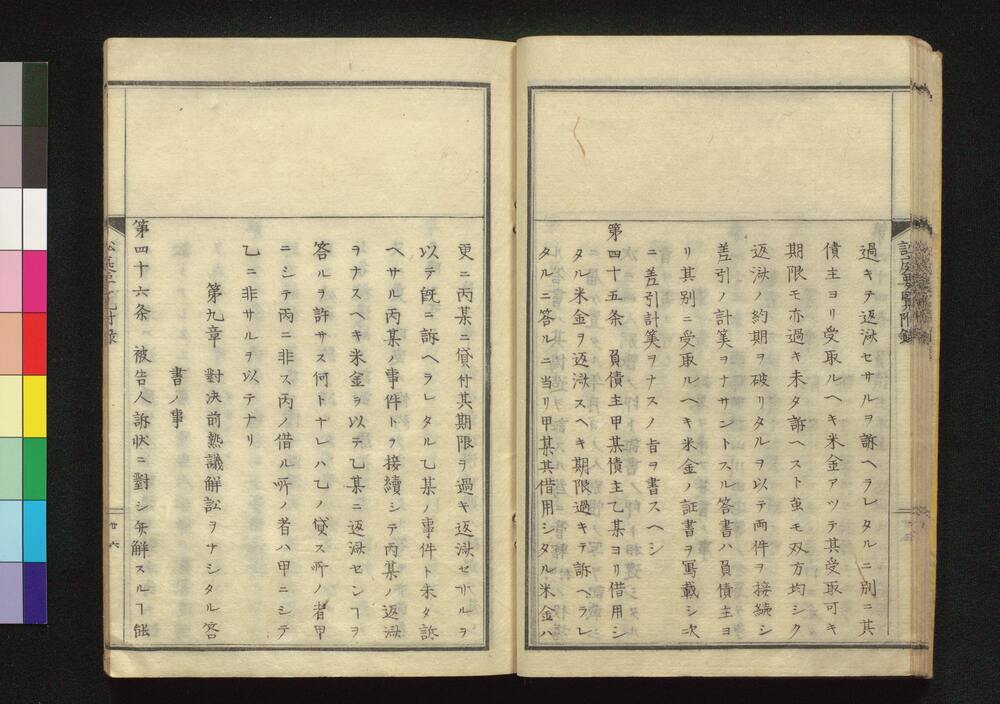 過キテ返濟セサルヲ訴ヘラレタルニ別ニ其
債主ヨリ受取ルヘキ米金アツテ其受取可キ
期限モ亦過キ未タ訴ヘスト虽モ双方均シク
返濟ノ約期ヲ破リタルヲ以テ両件ヲ接続シ
差引ノ計筭ヲナサントスル答書ハ負債主ヨ
リ其別ニ受取ルヘキ米金ノ証書ヲ写載シ次
ニ差引計筭ヲナスノ旨ヲ書スヘシ
第四十五条 負債主甲某債主乙某ヨリ借用シ
タル米金ヲ返濟スヘキ期限過キテ訴ヘラレ
タルニ答ルニ当リ甲某其借用シタル米金ハ
更ニ丙某ニ貸付其期限ヲ過キ返濟セサルヲ
以テ既ニ訴ヘラレタル乙某ノ事件ト未タ訴
ヘサル丙某ノ事件トヲ接續シテ丙某ノ返濟
ヲナスヘキ米金ヲ以テ乙某ニ返濟センヿヲ
答ルヲ許サス何トナレハ乙ノ貸ス所ノ者甲
ニシテ丙ニ非ス丙ノ借ル所ノ者ハ甲ニシテ
乙ニ非サルヲ以テナリ
第九章 對决前熟議解訟ヲナシタル答
書ノ事
第四十六条 被告人訴状ニ對シ弁解スルヿ能
廿六